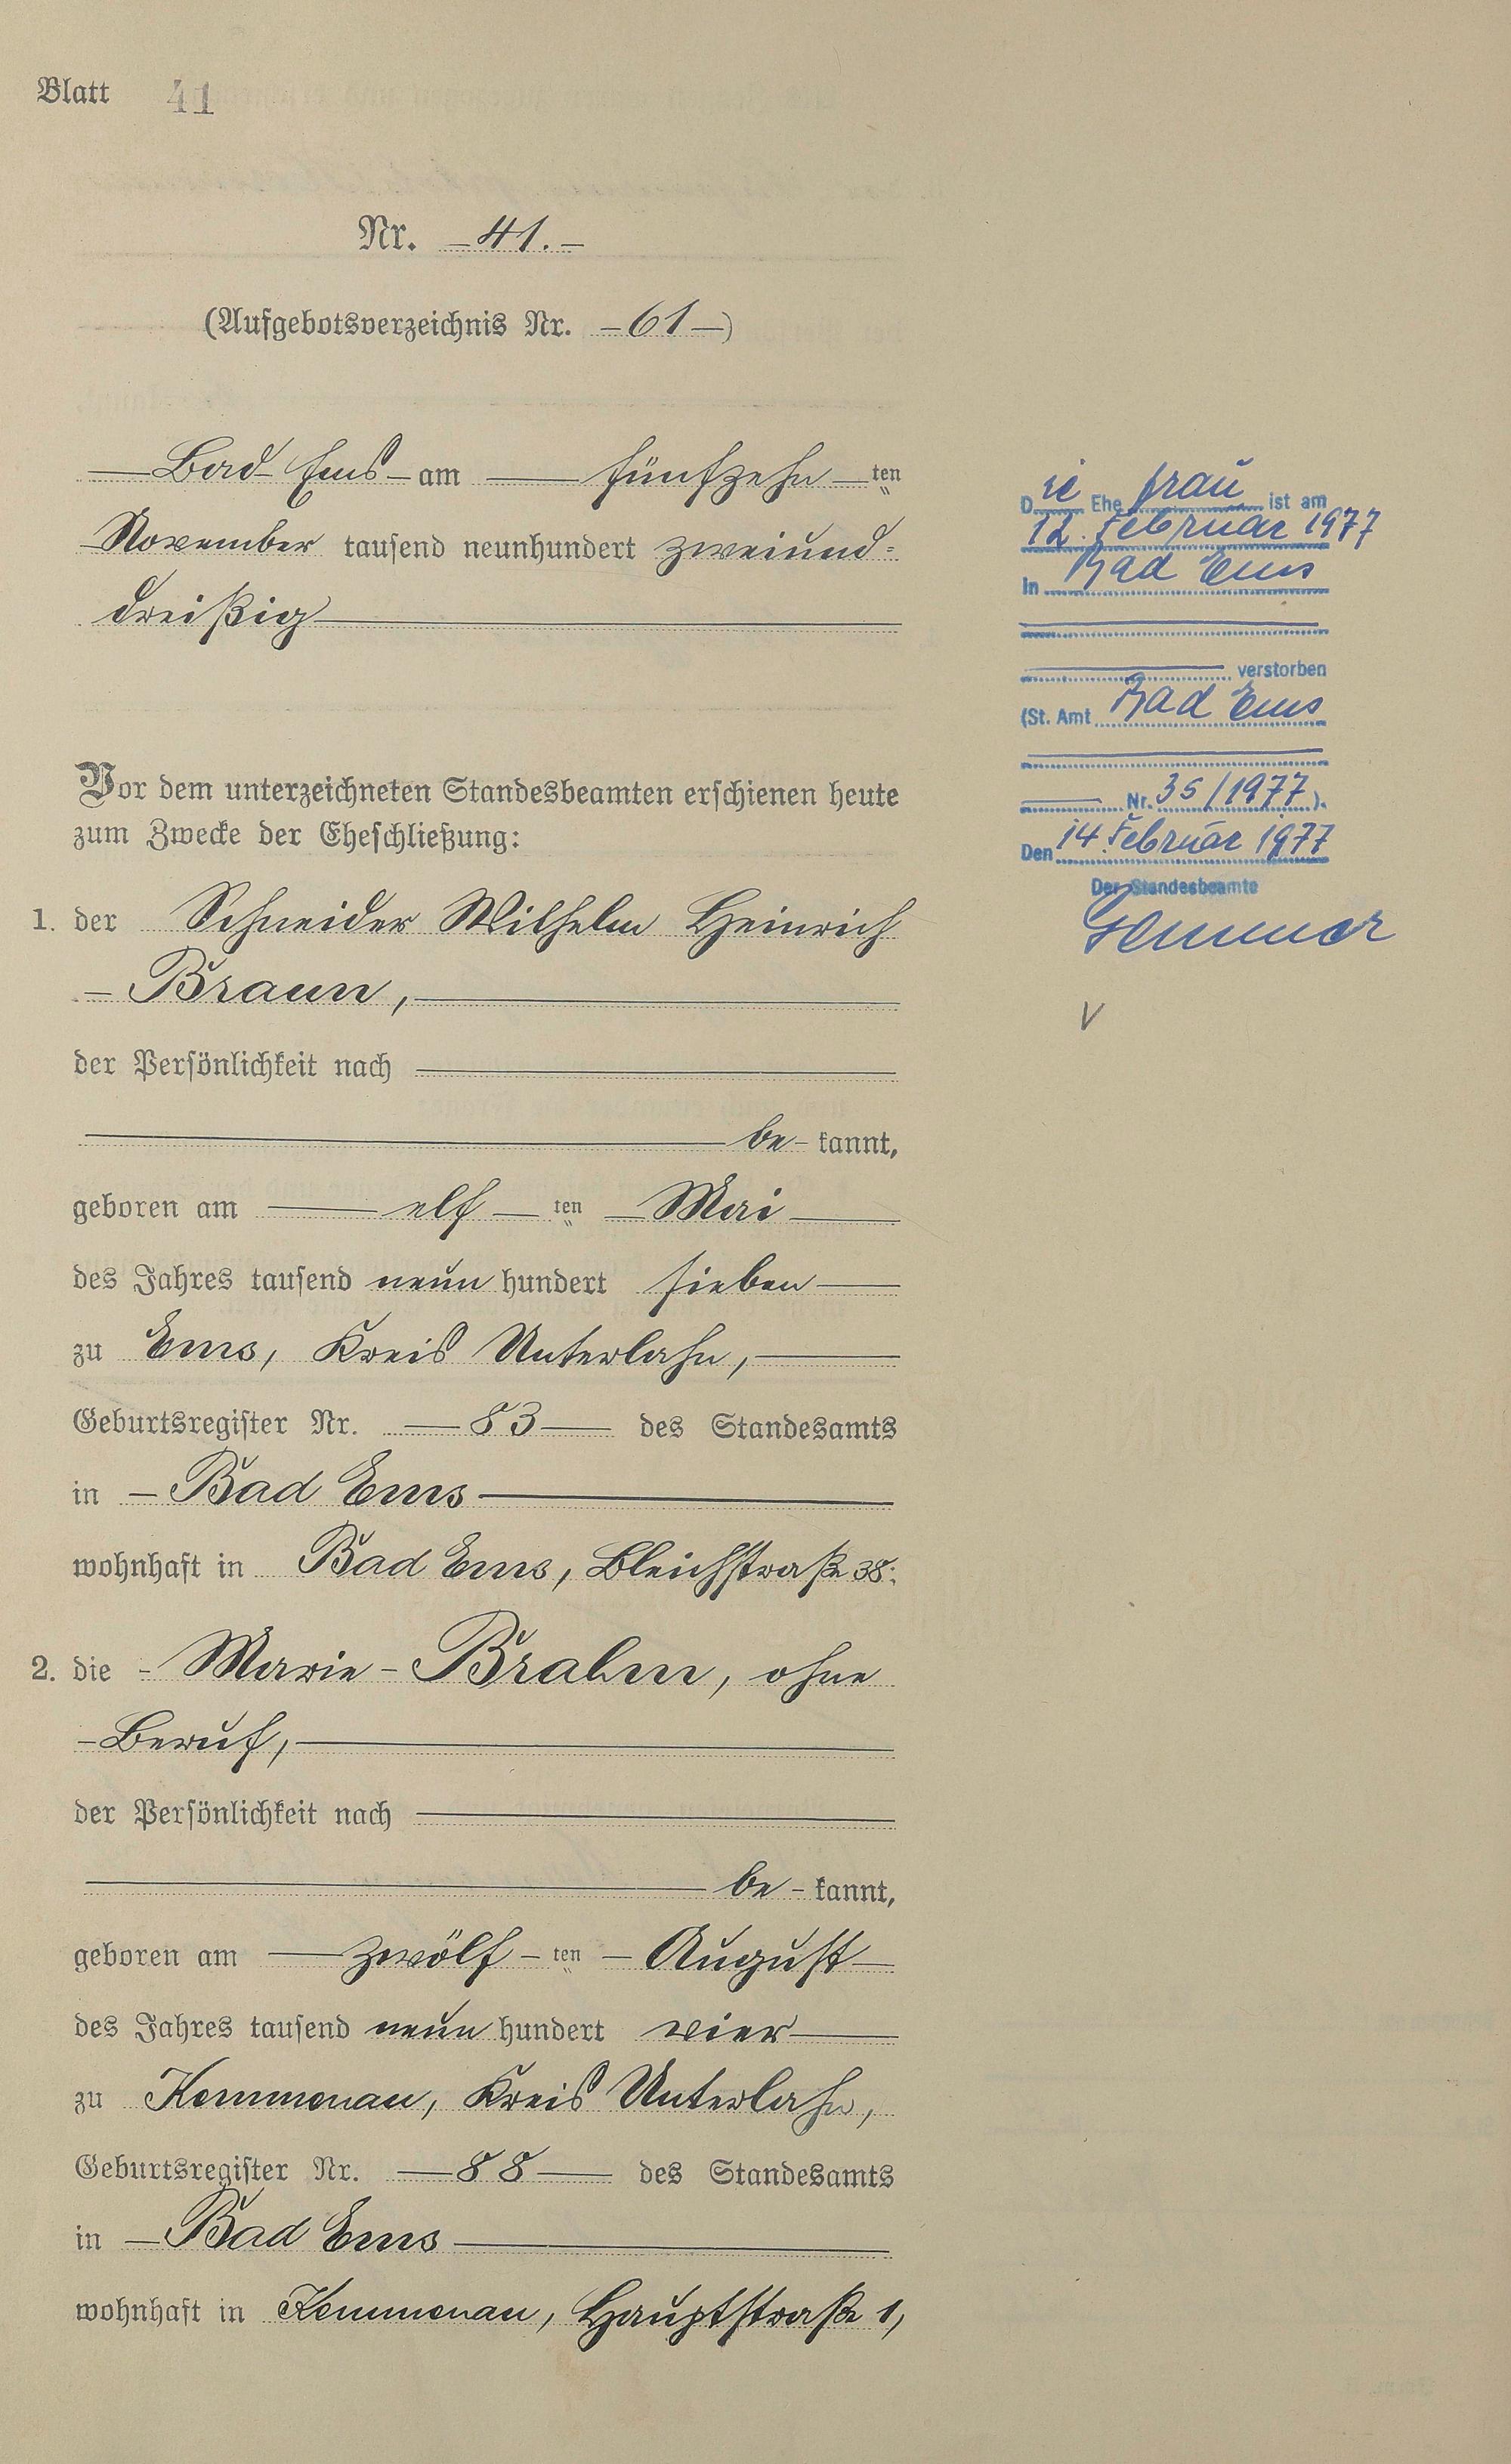 Blatt 41
Nr. 41.
(Aufgebotsverzeichnis Nr. 61)
Bad Ems am fünfzehn ten
November tausend neunhundert zweiund-
dreißig
Vor dem unterzeichneten Standesbeamten erschienen heute
zum Zwecke der Eheschließung:
1. der Schneider Wilhelm Heinrich
Braun,
der Persönlichkeit nach
be- kannt,
geboren am elf ten Mai
des Jahres tausend neun hundert sieben
zu Ems, Kreis Unterlahn,
Geburtsregister Nr. 83 des Standesamts
in Bad Ems
wohnhaft in Bad Ems, Bleichstraße 38.
2. die Marie Brahm, ohne
Beruf,
der Persönlichkeit nach
be- kannt,
geboren am zwölf ten August
des Jahres tausend neun hundert vier
zu Kemmenau, Kreis Unterlahn,
Geburtsregister Nr. 88 des Standesamts
in Bad Ems
wohnhaft in Kemmenau, Hauptstraße 1,
Die Ehefrau ist am
12. Februar 1977
in Bad Ems
verstorben
(St. Amt Bad Ems
Nr. 35/1977).
Den 14. Februar 1977
Der Standesbeamte